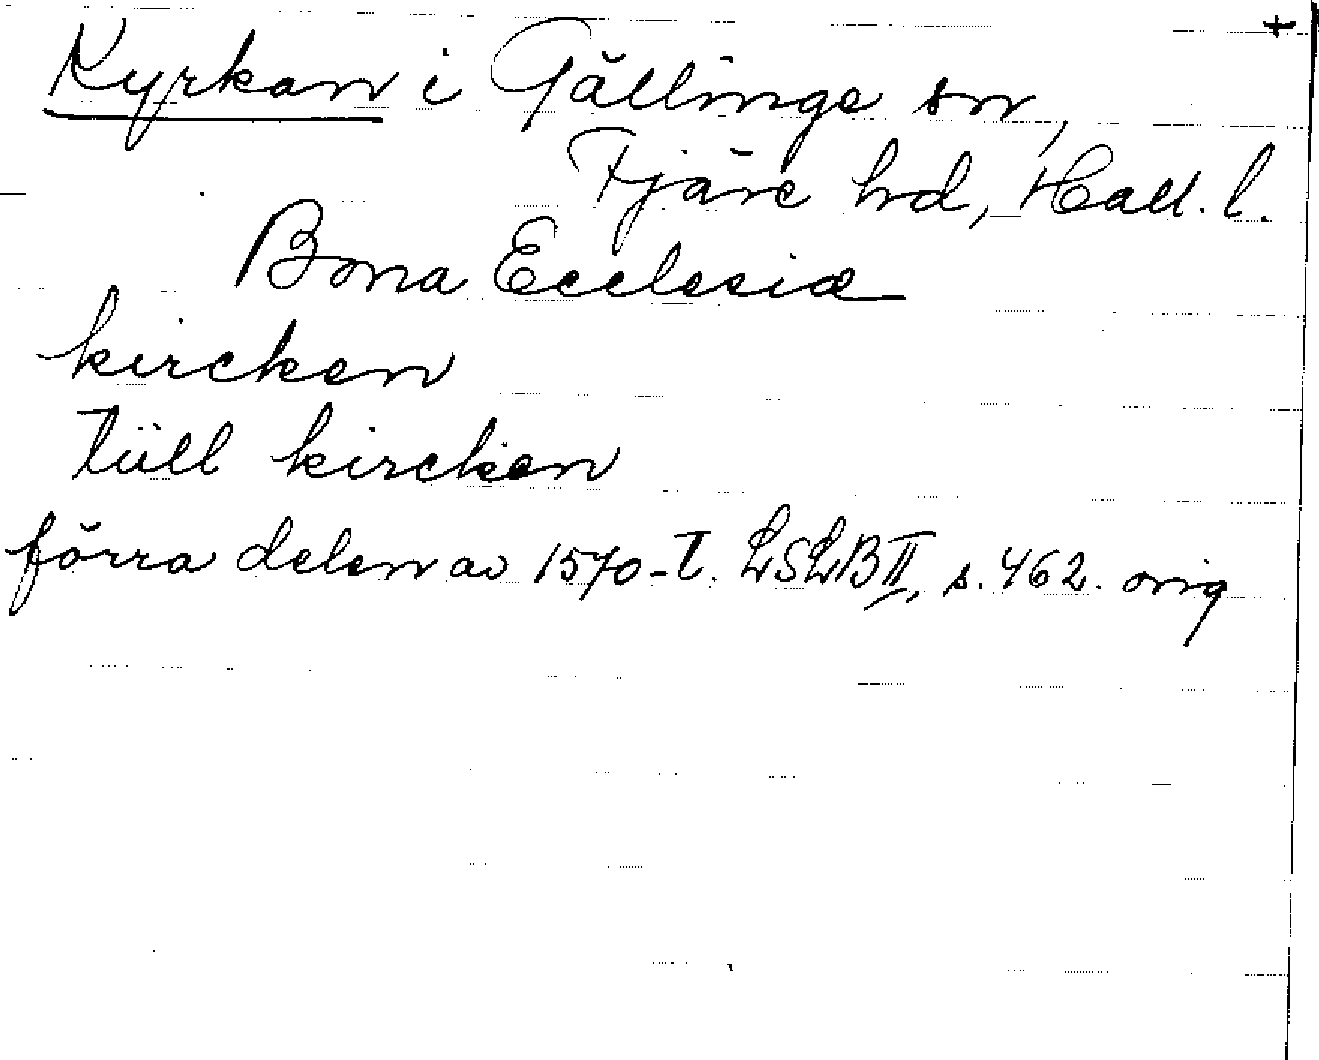 +
Kyrkan i Gällinge sn,
Fjäre hd, Hall. l.
Bona Ecclesiæ
kircken
tüll kircken
förra delen av 1570-t. LSLB II, s. 462. orig